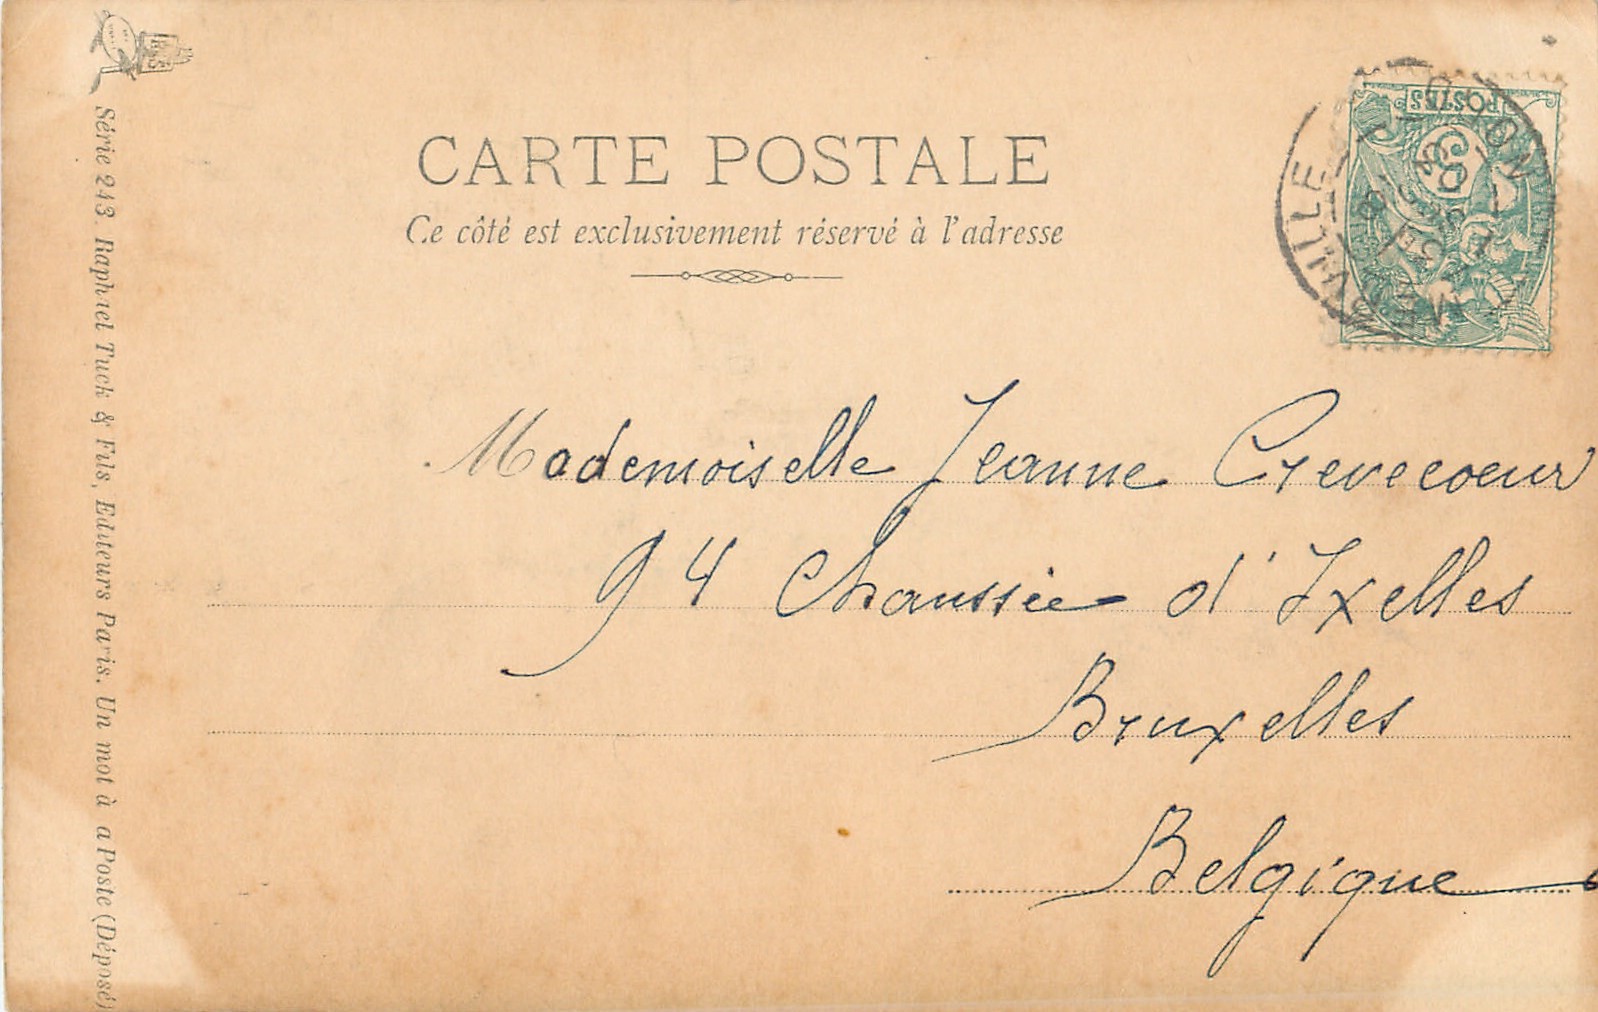 CARTE POSTALE
Ce côté est exclusivement réservé à l'adresse
POSTES
5
Mademoiselle Jeanne Crevecoeur
94 Chaussée d'Ixelles
Bruxelles
Belgique
Série 243. Raphael Tuck & Fils, Editeurs Paris. Un mot à a Poste (Déposé)